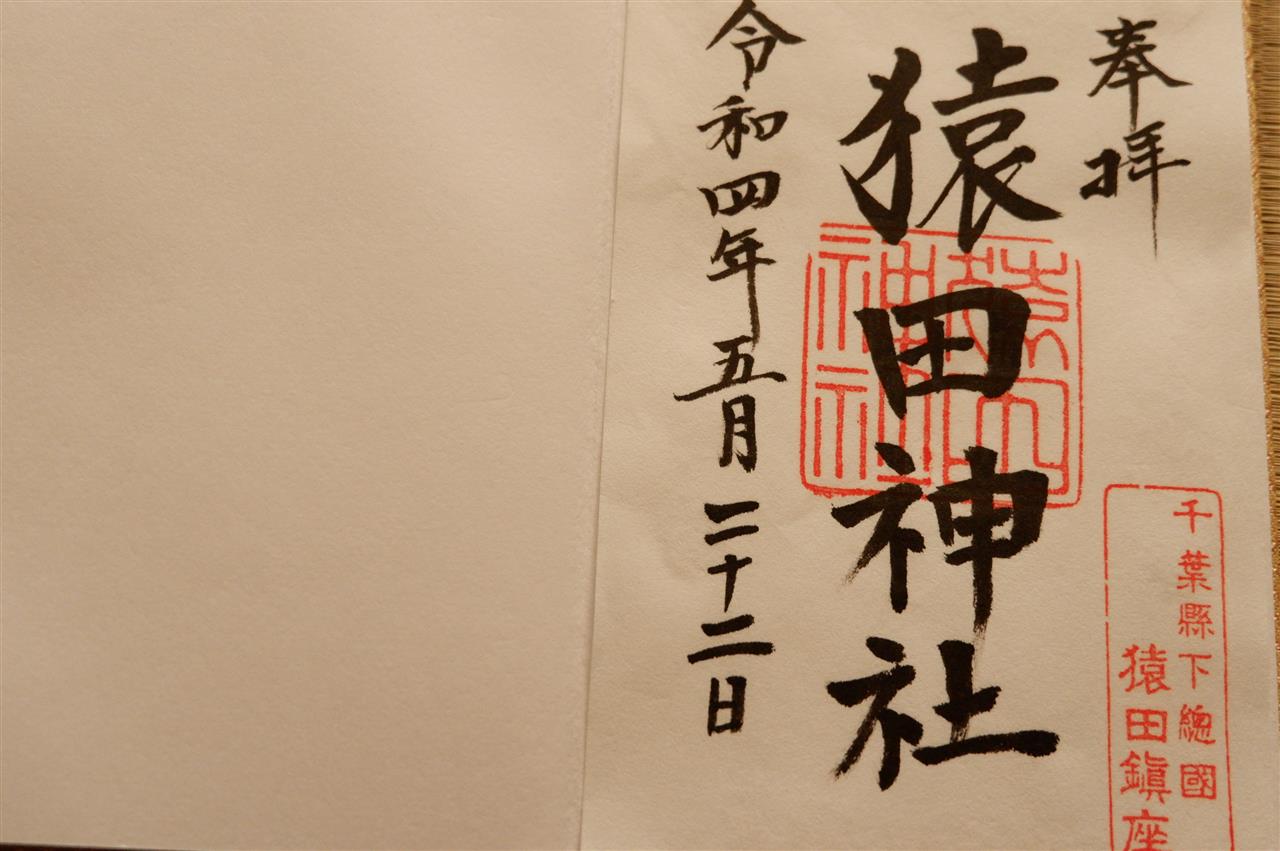 奉拝
猿田神社
令和四年五月二十二日
猿田神社
千葉縣下總國
猿田鎭座